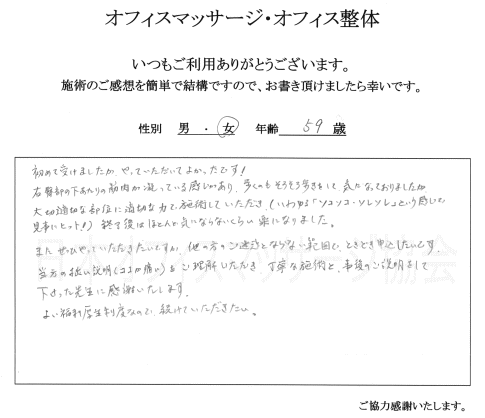 オフィスマッサージ・オフィス整体
いつもご利用ありがとうございます。
施術のご感想を簡単で結構ですので、お書き頂けましたら幸いです。
性別 男 ・ 女 年齢 59 歳
初めて受けましたが、やっていただいてよかったです!
右臀部の下あたりの筋肉が凝っている感じがあり、歩くのもそろそろ歩きをして気になっておりましたが
大切適切な部位に適切な力で施術していただき(いわゆる「ソコソコ・ソレソレ」という感じで
見事にヒット!) 終了後はほとんど気にならないくらい楽になりました。
また ぜひやっていただきたいですが、他の方のご迷惑とならない範囲で、ときどき申込したいです。
当方の拙い説明(ココが痛い)をご理解いただき 丁寧な施術と、事後のご説明をして
下さった先生に感謝いたします。
よい福利厚生制度なので、続けていただきたい。
日本オフィスマッサージ協会
ご協力感謝いたします。